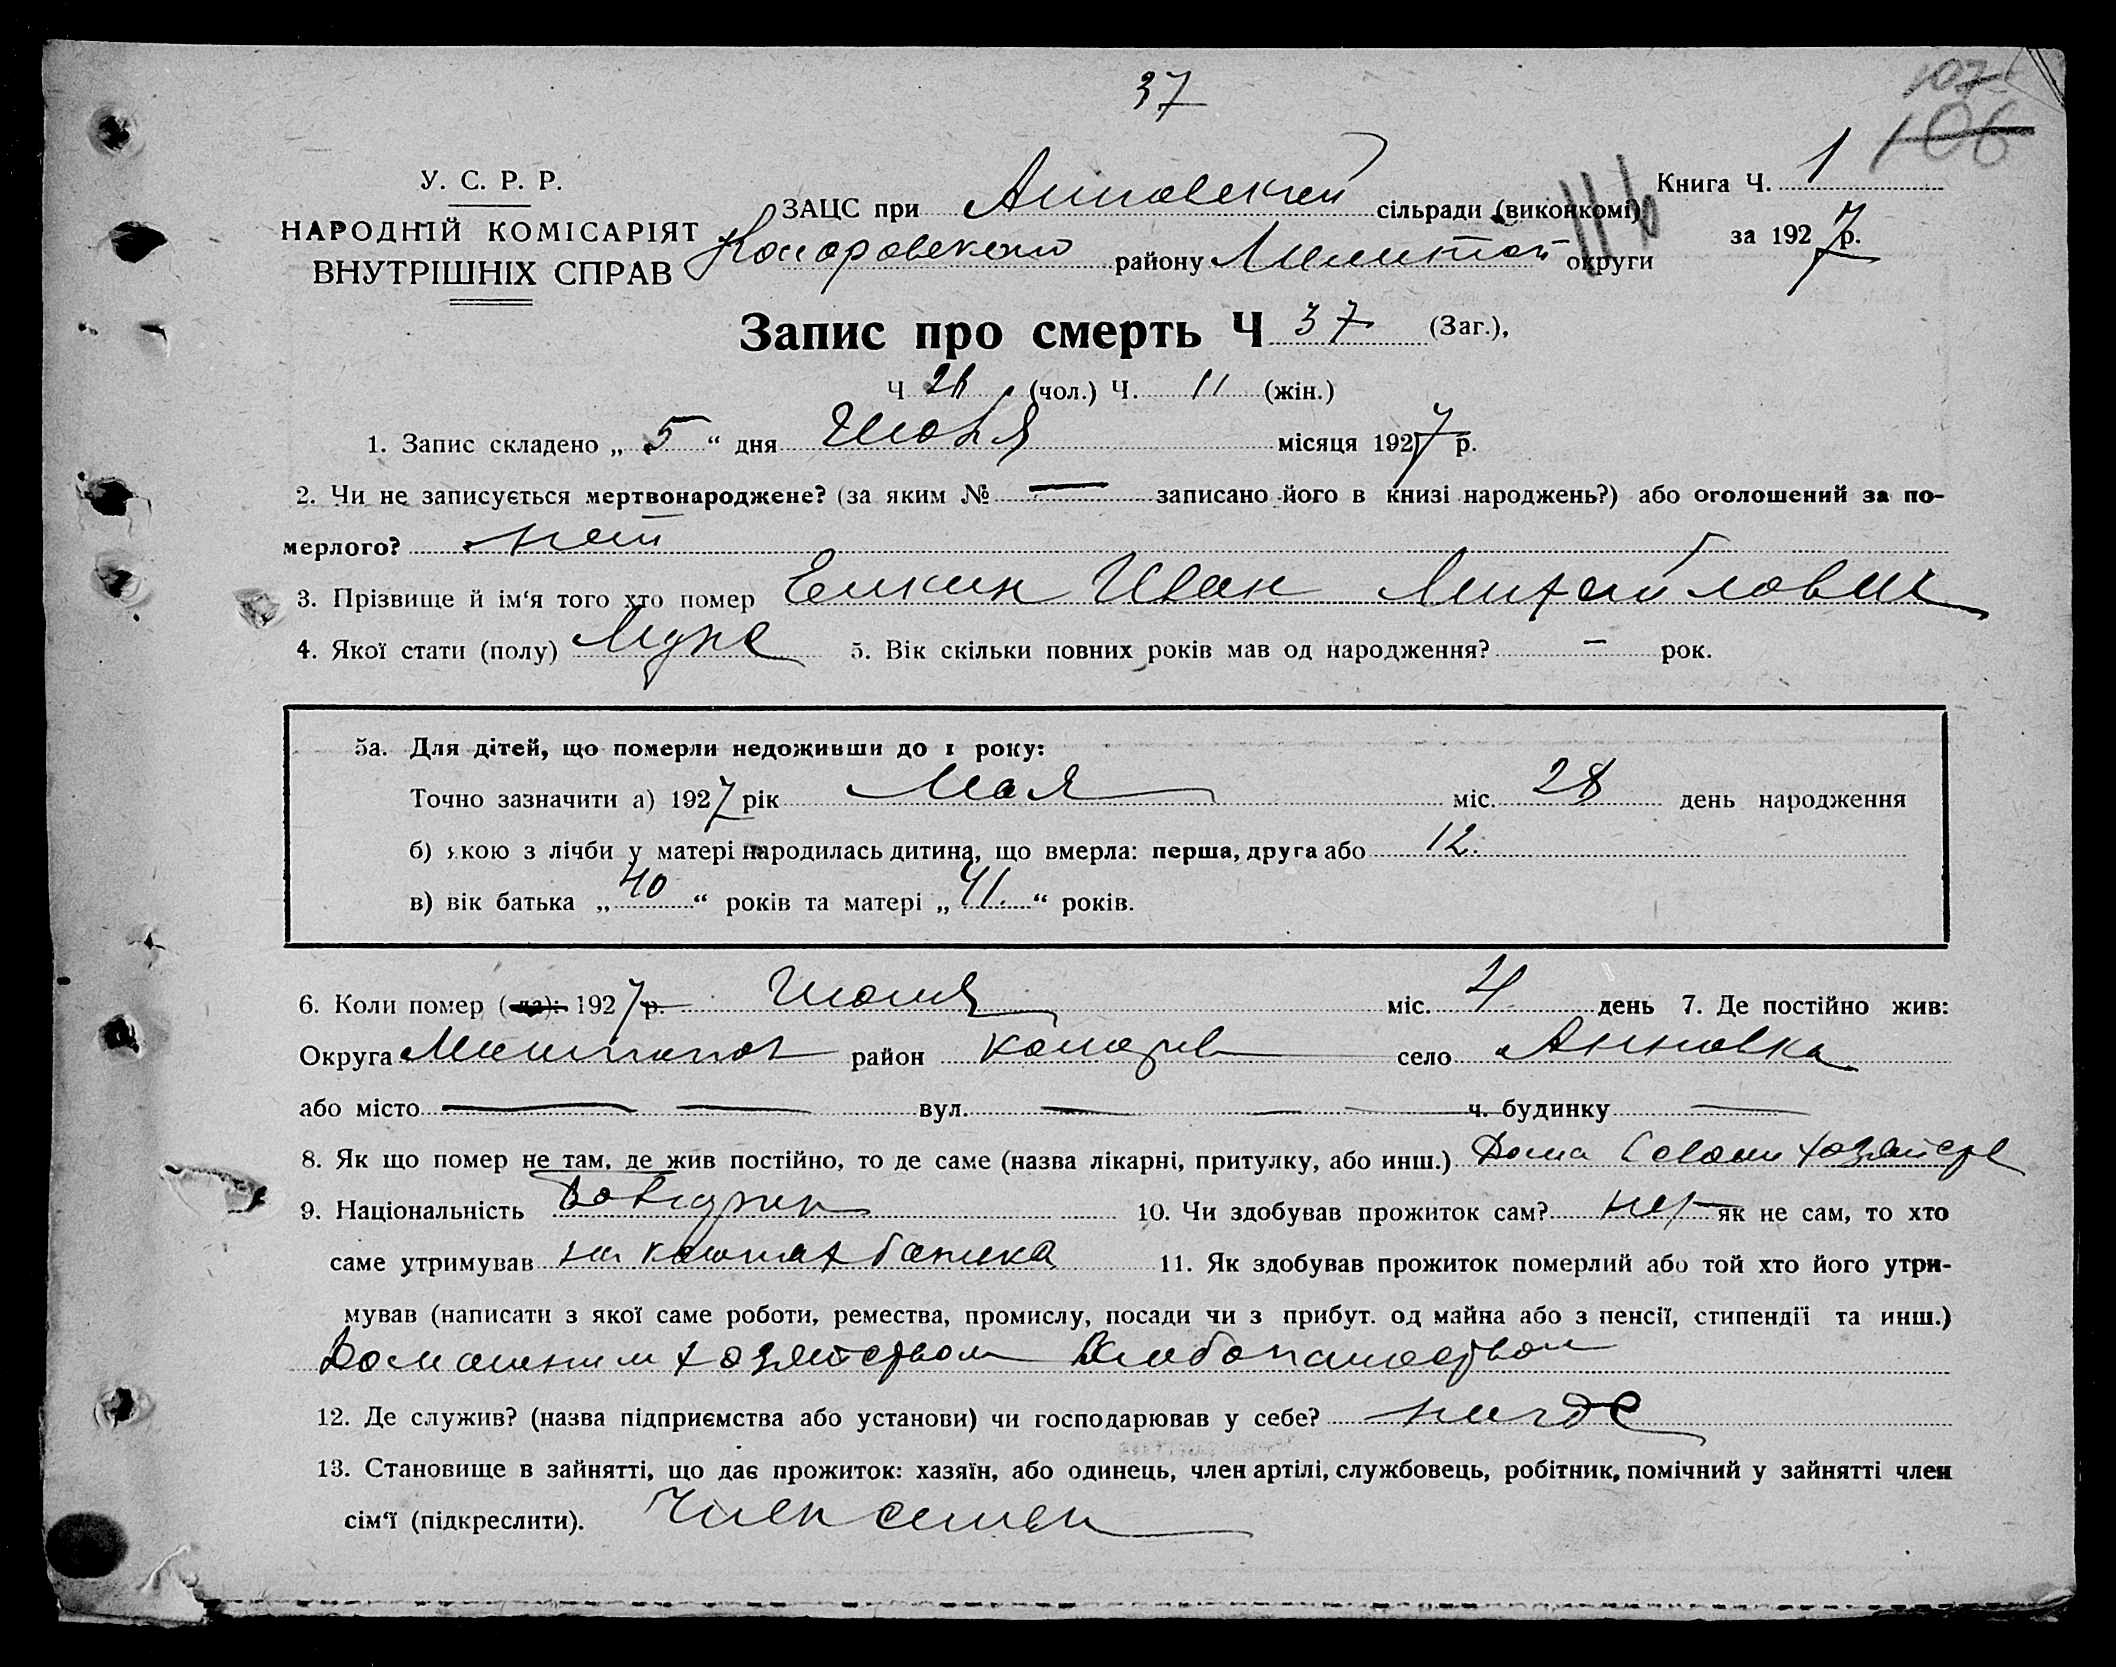 37
107
106
У. С. Р. Р.
НАРОДНІЙ КОМІСАРІЯТ
ВНУТРІШНІХ СПРАВ
ЗАЦС при Анновский сільради (виконкомі)
116
Книга Ч. 1
району Мелитоп округи
за 1927 р.
Запис про смерть Ч 37 (Заг.),
Ч 26 (чол.) Ч. 11 (жін.)
1. Запис складено „ 5 “ дня Июня місяця 1927 р.
2. Чи не записується мертвонароджене? (за яким № — записано його в книзі народжень?) або оголошений за по-
мерлого? нет
3. Прізвище й ім‘я того хто помер Елкин Иван Михайлович
4. Якої стати (полу) Муж 5. Вік скільки повних років мав од народження? — рок.
5а. Для дітей, що померли недоживши до 1 року:
Точно зазначити а) 1927 рік Мая міс. 28 день народження
б) якою з лічби у матері народилась дитина, що вмерла: перша, друга або 12.
в) вік батька „ 40 “ років та матері „ 41. “ років.
6. Коли помер (ла): 1927 р. Июня міс. 4 день 7. Де постійно жив:
Округа Мелитопол район село Анновка
або місто — — вул. — — ч. будинку —
8. Як що помер не там, де жив постійно, то де саме (назва лікарні, притулку, або инш.) Дома
9. Національність 10. Чи здобував прожиток сам? нет як не сам, то хто
саме утримував на коштах батька 11. Як здобував прожиток померлий або той хто його утри-
мував (написати з якої саме роботи, ремества, промислу, посади чи з прибут. од майна або з пенсії, стипендії та инш.)
Домашним хозяйством Хлебопашеством
12. Де служив? (назва підприємства або установи) чи господарював у себе? нигде
13. Становище в зайнятті, що дає прожиток: хазяїн, або одинець, член артілі, службовець, робітник, помічний у зайнятті член
сім‘ї (підкреслити). Член семьи